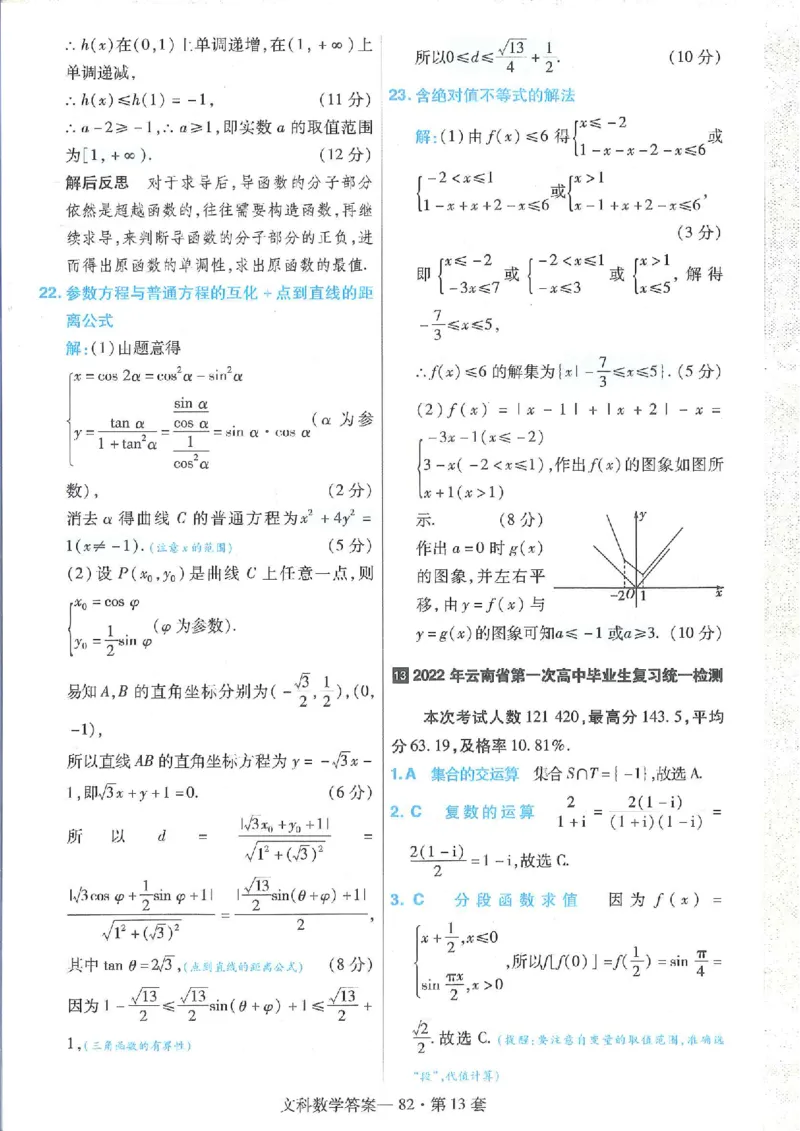 ∴ h(x)在(0,1)上单调递增,在(1, +∞)上
单调递减,
∴ h(x)≤h(1) = -1, (11分)
∴ a-2≥ -1, ∴ a≥1,即实数 a 的取值范围
为[1, +∞). (12分)
解后反思 对于求导后,导函数的分子部分
依然是超越函数的,往往需要构造函数,再继
续求导,来判断导函数的分子部分的正负,进
而得出原函数的单调性,求出原函数的最值.
22. 参数方程与普通方程的互化+点到直线的距
离公式
解:(1)由题意得
{x = cos 2α = cos²α - sin²α
y = tan α/(1+tan²α) = (sin α/cos α)/(1/cos²α) = sin α·cos α (α 为参
数), (2分)
消去 α 得曲线 C 的普通方程为x² +4y² =
1(x≠ -1). (注意x的范围) (5分)
(2)设 P(x₀,y₀)是曲线 C 上任意一点,则
{x₀ = cos φ
y₀ = 1/2 sin φ (φ为参数).
易知A,B 的直角坐标分别为( -√3/2, 1/2),(0,
-1),
所以直线 AB 的直角坐标方程为 y = -√3x -
1,即√3x + y + 1 =0. (6分)
所以 d = |√3x₀ + y₀ +1|/√(1² + (√3)²) =
|√3cos φ + 1/2 sin φ +1|/√(1² + (√3)²) = |√13/2 sin(θ+φ) +1|/2,
其中 tan θ =2√3,(点到直线的距离公式) (8分)
因为 1 - √13/2 ≤ √13/2 sin(θ+φ) +1≤ √13/2 +
1,(三角函数的有界性)
所以0≤d≤ √13/4 + 1/2. (10分)
23. 含绝对值不等式的解法
解:(1)由 f(x)≤6 得{x≤ -2
1-x-x-2-x≤6 或
{-2<x≤1
1-x+x+2-x≤6 或{x>1
x-1+x+2-x≤6,
(3分)
即{x≤ -2
-3x≤7 或{-2<x≤1
-x≤3 或{x>1
x≤5, 解得
-7/3≤x≤5,
∴ f(x)≤6 的解集为{x| -7/3≤x≤5}. (5分)
(2) f(x) = |x - 1| + |x + 2| - x =
{-3x-1(x≤ -2)
3-x( -2<x≤1)
x+1(x>1) ,作出f(x)的图象如图所
示. (8分)
作出 a=0 时 g(x)
的图象,并左右平
移,由y=f(x)与
y=g(x)的图象可知a≤ -1 或a≥3. (10分)
y
-2 O 1 x
13 2022 年云南省第一次高中毕业生复习统一检测
本次考试人数 121 420,最高分 143.5,平均
分 63.19,及格率 10.81%.
1. A 集合的交运算 集合 S∩T={ -1},故选 A.
2. C 复数的运算 2/(1+i) = 2(1-i)/((1+i)(1-i)) =
2(1-i)/2 = 1-i,故选 C.
3. C 分段函数求值 因为 f(x) =
{x + 1/2, x≤0
sin πx/2, x>0 ,所以f[f(0)] =f(1/2) = sin π/4 =
√2/2. 故选 C. (提醒:要注意自变量的取值范围,准确选
“段”,代值计算)
文科数学答案—82·第13套